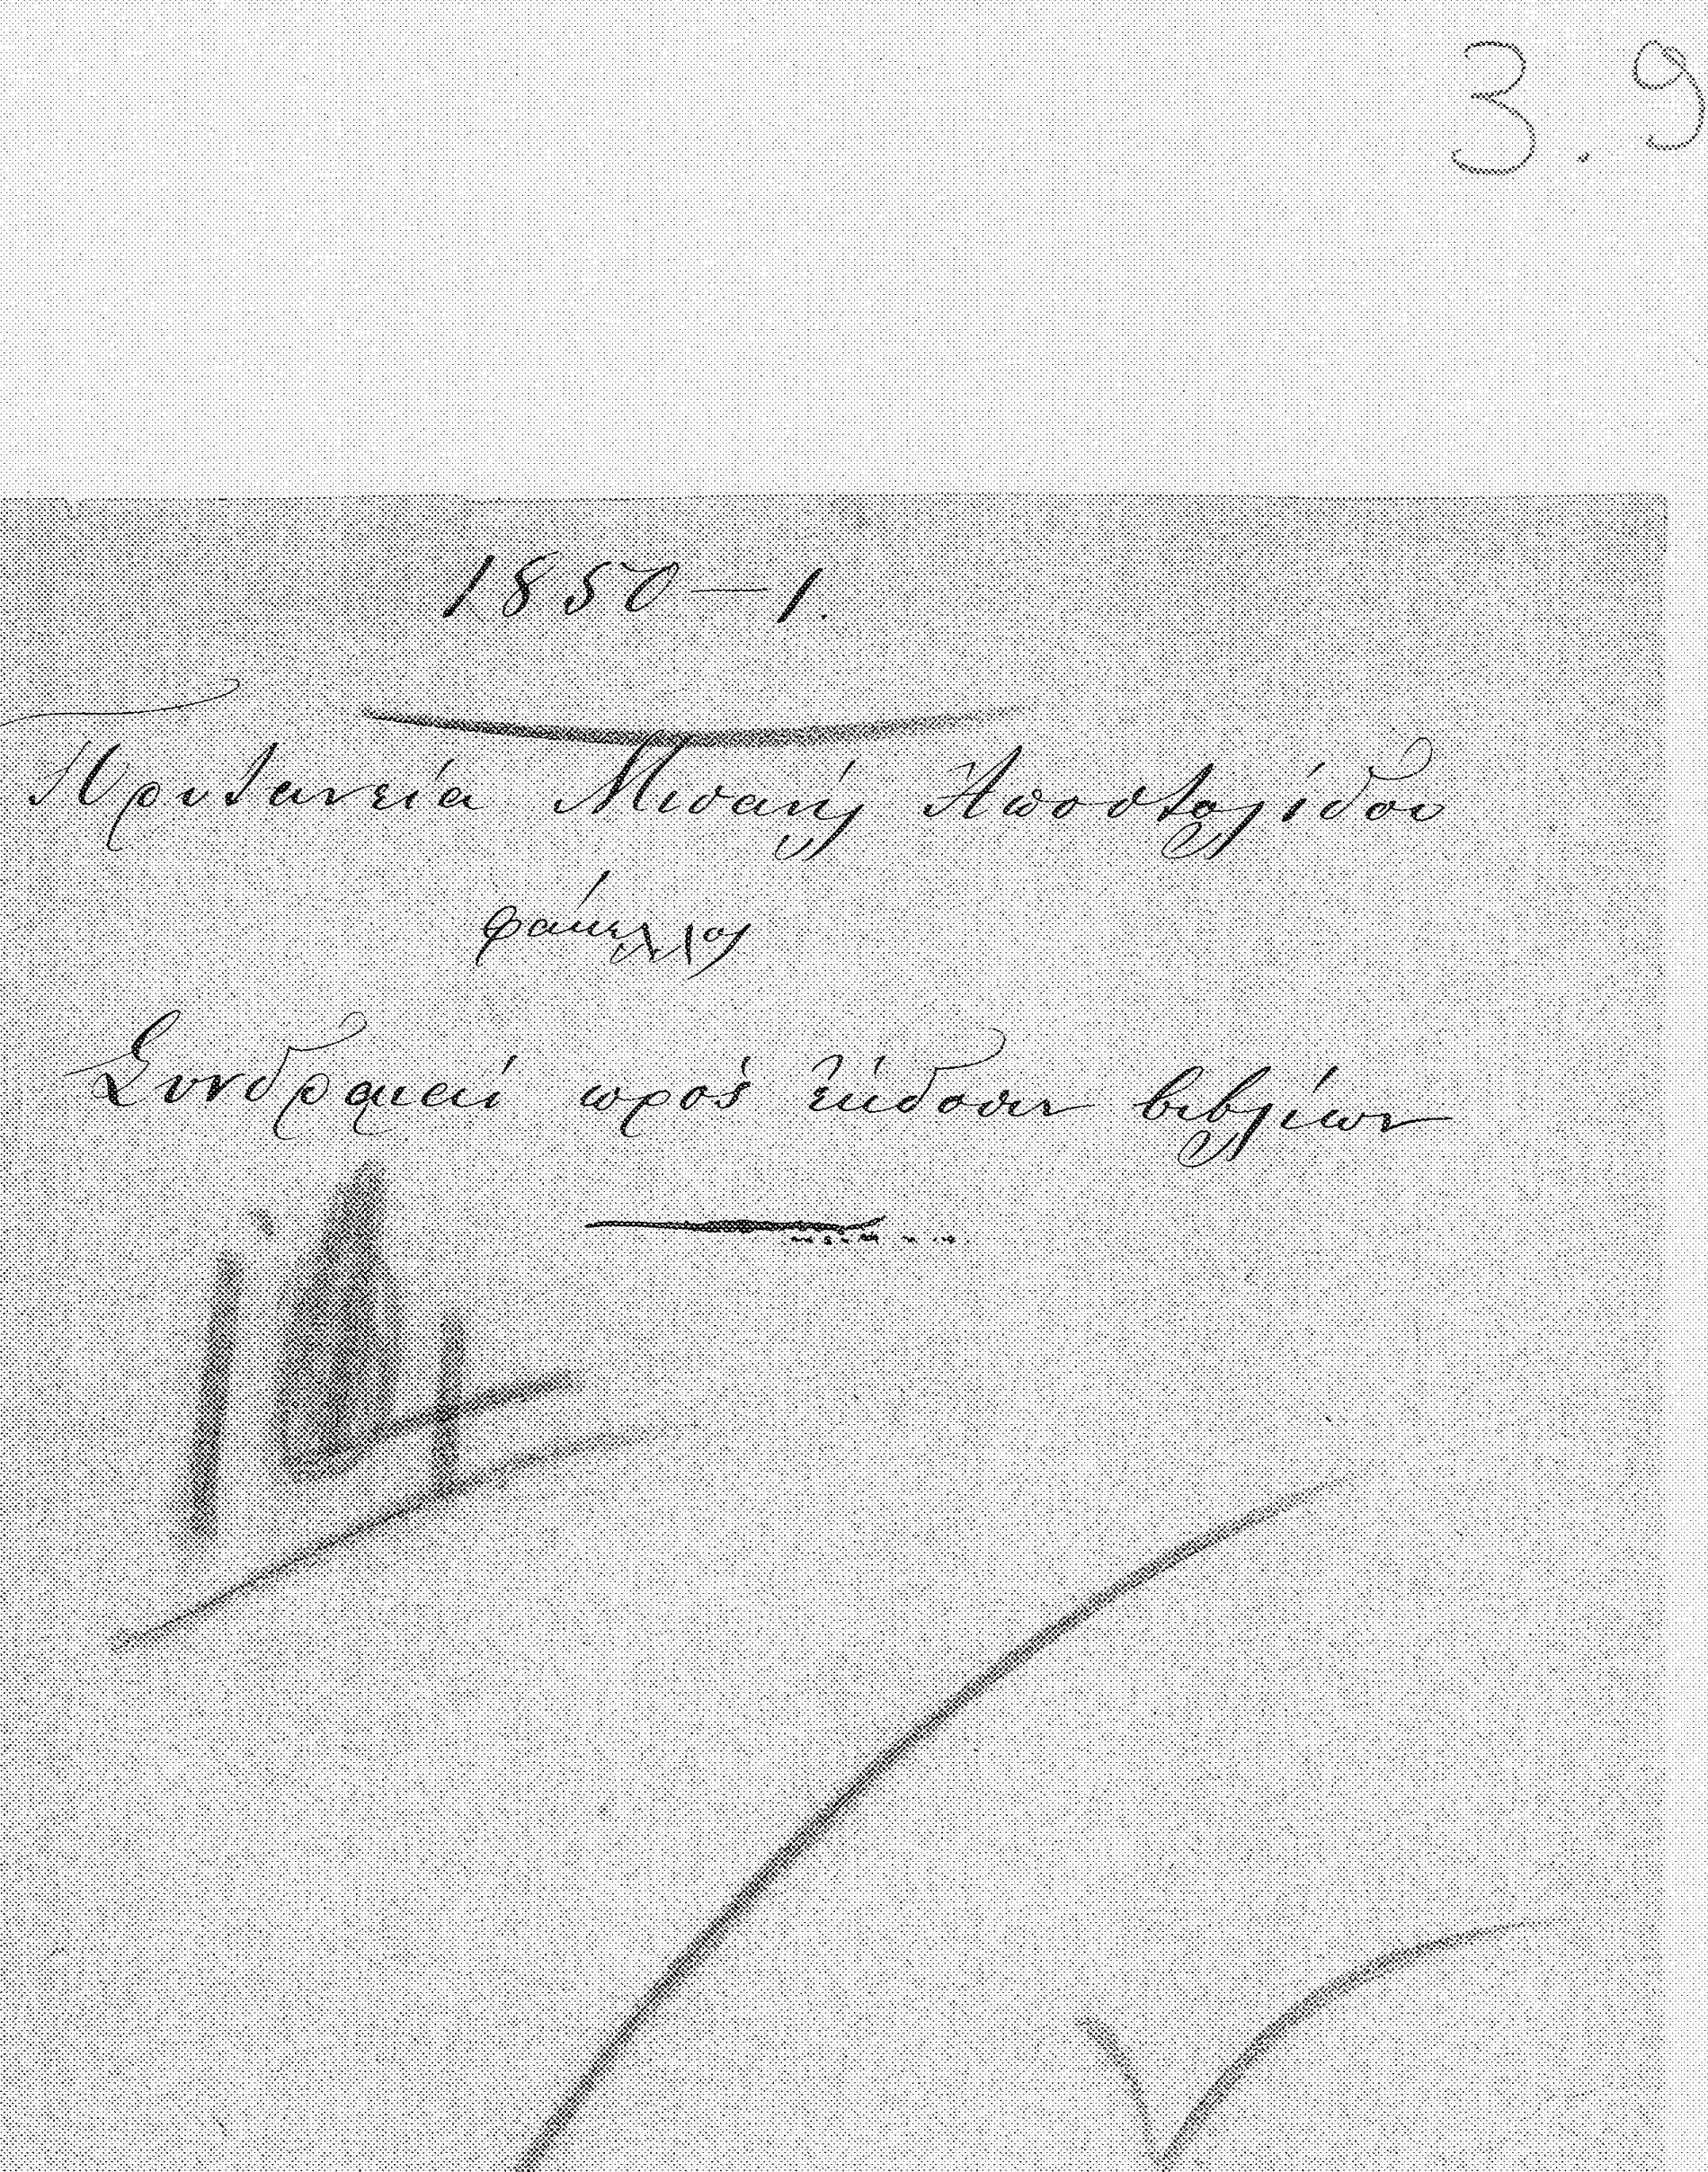 3.9
1850—1.
Πρυτανεία Μισαήλ Ἀποστολίδου
φάκελλος
Συνδρομαί πρός ἔκδοσιν βιβλίων